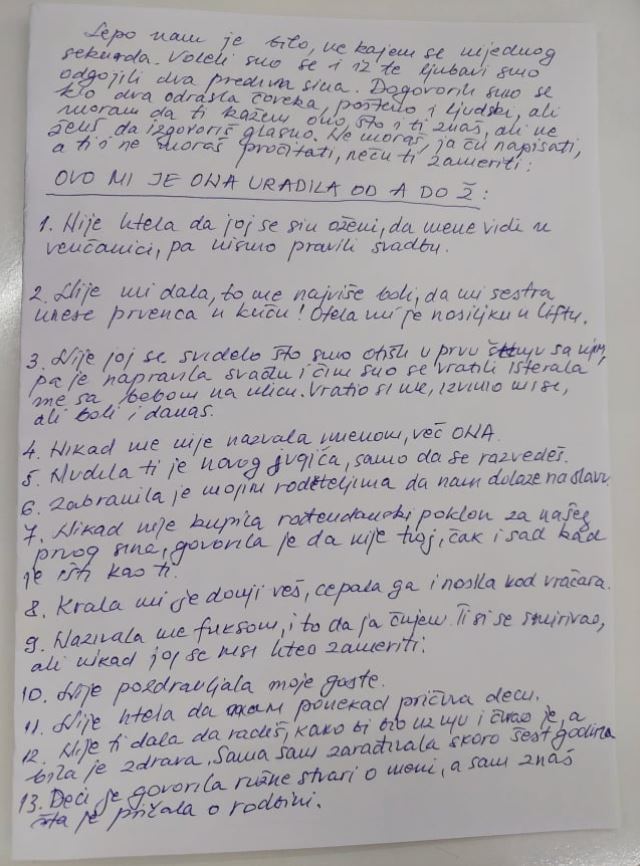 Lepo nam je bilo, ne kajem se nijednog
sekunda. Voleli smo se i iz te ljubavi smo
odgojili dva predivna sina. Dogovorili smo se
kao dva odrasla čoveka, pošteno i ljudski, ali
moram da ti kažem ono što i ti znaš, ali ne
želiš da izgovoriš glasno. Ne moraš, ja ću napisati,
a ti i ne moraš pročitati, neću ti zameriti:
OVO MI JE ONA URADILA OD A DO Ž:
1. Nije htela da joj se sin oženi, da mene vidi u
venčanici, pa nismo pravili svadbu.
2. Nije mi dala, to me najviše boli, da mi sestra
unese prvenca u kuću! Otela mi je nosiljku u liftu.
3. Nije joj se svidelo što smo otišli u prvu šetnju sa njim,
pa je napravila svađu i čim smo se vratili isterala
me sa bebom na ulicu. Vratio si me, izvinio mi se,
ali boli i danas.
4. Nikad me nije nazvala imenom, već ONA.
5. Nudila ti je novog jugića, samo da se razvedeš.
6. Zabranila je mojim roditeljima da nam dolaze na slavu.
7. Nikad nije kupila rođendanski poklon za našeg
prvog sina, govorila je da nije tvoj, čak i sad kad
je isti kao ti.
8. Krala mi je donji veš, cepala ga i nosila kod vračara.
9. Nazivala me fuksom, i to da ja čujem. Ti si se smirivao,
ali nikad joj se nisi hteo zameriti.
10. Nije pozdravljala moje goste.
11. Nije htela da mam ponekad pričuva decu.
12. Nije ti dala da radiš, kako bi bio uz nju i čuvao je, a
bila je zdrava. Sama sam zarađivala skoro šest godina
13. Deci je govorila ružne stvari o meni, a sam znaš
šta je pričala o rodbini.